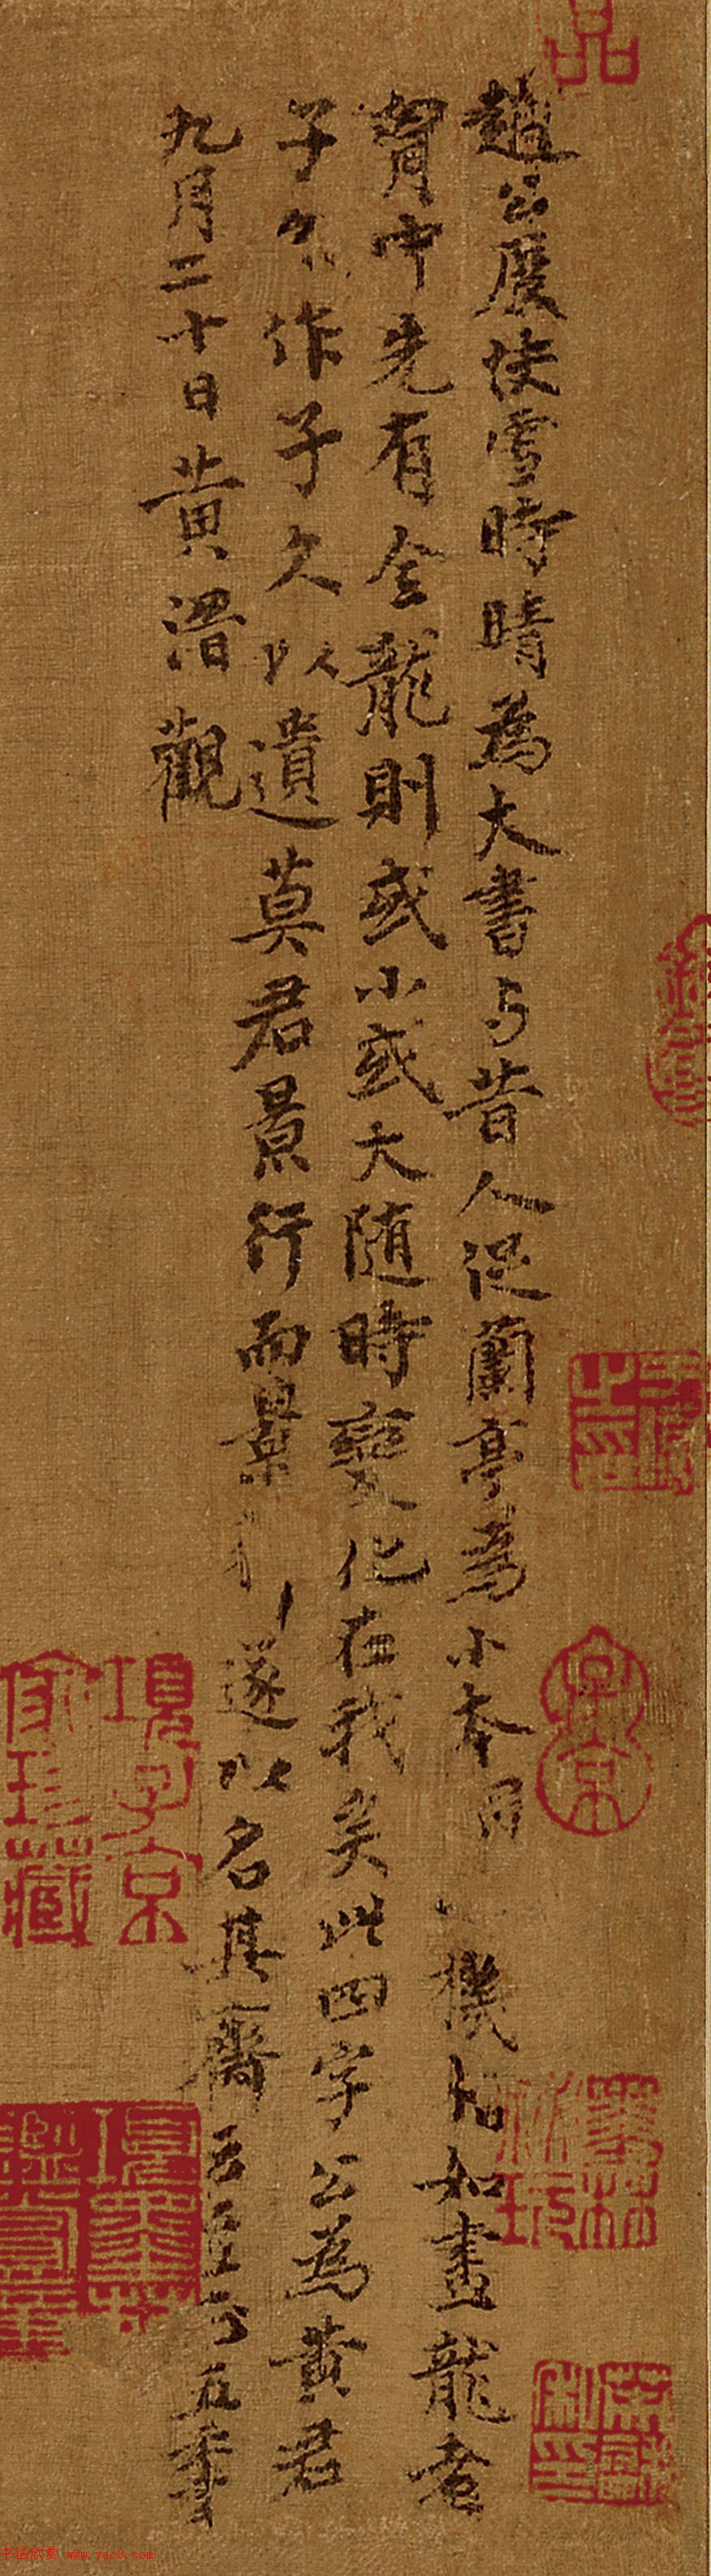 趙公展快雪時晴為大書与昔人促蘭亭為小本同一機如畫龍者
胷中先有全龍則或小或大随時變化在我矣此四字公為黄君
子久作子久以遺莫君景行而景行遂以名其齋云至正五年
九月二十日黄溍觀
子京
項子京家珍藏
www.yac8.com